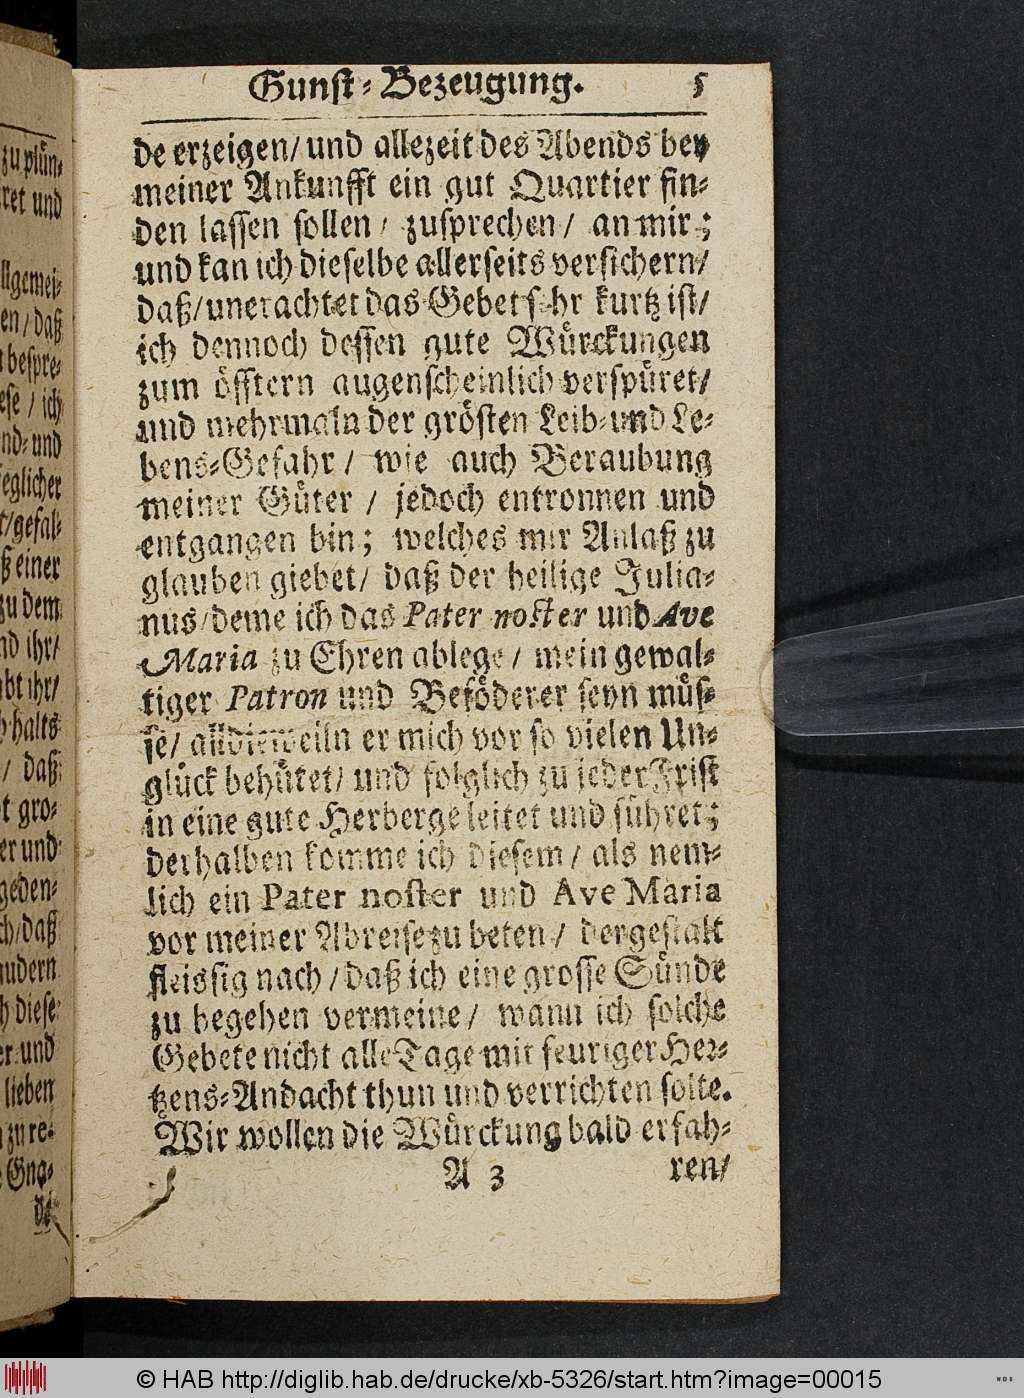 Gunst-Bezeugung. 5
de erzeigen/ und allezeit des Abends bey
meiner Ankunfft ein gut Quartier fin-
den lassen sollen/ zusprechen/ an mir;
und kan ich dieselbe allerseits versichern/
daß/ unerachtet das Gebet sehr kurtz ist/
ich dennoch dessen gute Würckungen
zum öfftern augenscheinlich verspüret/
und mehrmaln der grösten Leib- und Le-
bens-Gefahr/ wie auch Beraubung
meiner Güter/ jedoch entronnen und
entgangen bin; welches mir Anlaß zu
glauben giebet/ daß der heilige Julia-
nus/ deme ich das Pater noster und Ave
Maria zu Ehren ablege/ mein gewal-
tiger Patron und Beföderer seyn müs-
se/ alldieweiln er mich vor so vielen Un-
glück behütet/ und folglich zu jeder Frist
in eine gute Herberge leitet und führet;
derhalben komme ich diesem/ als nem-
lich ein Pater noster und Ave Maria
vor meiner Abreise zu beten/ dergestalt
fleissig nach/ daß ich eine grosse Sünde
zu begehen vermeine/ wann ich solche
Gebete nicht alle Tage mit feuriger Her-
tzens-Andacht thun und verrichten solte.
Wir wollen die Würckung bald erfah-
A 3 ren/
zu plün-
ret und
llgemei-
en/ daß
bespre-
ese/ ich
nd- und
eglicher
t/ gefal-
ß einer
zu dem
nd ihr/
bt ihr/
halts
/ daß
t gro-
er und
geden-
ch/ daß
udern
h diese
er und
lieben
zu re-
Gna-
de
© HAB http://diglib.hab.de/drucke/xb-5326/start.htm?image=00015
WDB